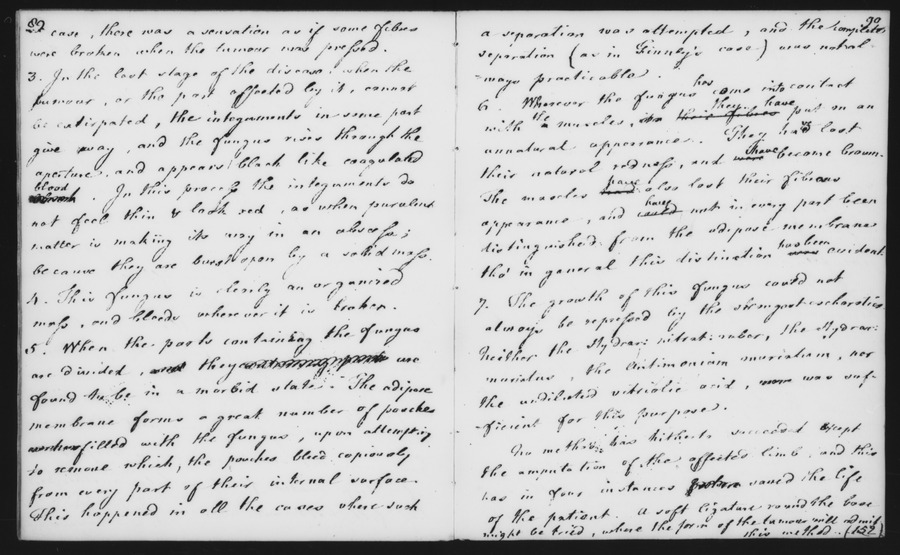 89
case, there was a sensation as if some fibres
were broken when the tumour was pressed.
3. In the last stage of the disease, when the
tumour, or the part affected by it, cannot
be extirpated, the integuments in some part
give way, and the fungus rises through the
aperture, and appears black like coagulated
blood
. In this process the integuments do
not feel thin & look red, as when purulent
matter is making its way in an abscess;
because they are burst open by a solid mass.
4. This fungus is clearly an organized
mass, and bleeds wherever it is broken.
5. When the parts containing the fungus
are divided, they are
found to be in a morbid state. The adipose
membrane forms a great number of pouches
filled with the fungus, upon attempting
to remove which, the pouches bleed copiously
from every part of their internal surface.
This happened in all the cases where such
90
a separation was attempted, and the complete
separation (as in Finney's case) was not al-
ways practicable.
6. Wherever the fungus has come into contact
with the muscles, they have put on an
unnatural appearance. They have lost
their natural redness, and have become brown.
The muscles have also lost their fibrous
appearance, and have not in every part been
distinguished from the adipose membrane
tho' in general this distinction has been evident.
7. The growth of this fungus could not
always be repressed by the strongest escharotics.
Neither the Hydrar: nitrat: ruber, the Hydrar:
muriatus, the Antimonium muriatum, nor
the undiluted vitriolic acid, was suf-
ficient for this purpose.
No method has hitherto succeeded except
the amputation of the affected limb, and this
has in four instances saved the life
of the patient. A soft ligature round the base
might be tried, where the form of the tumour will admit
this method. (152)